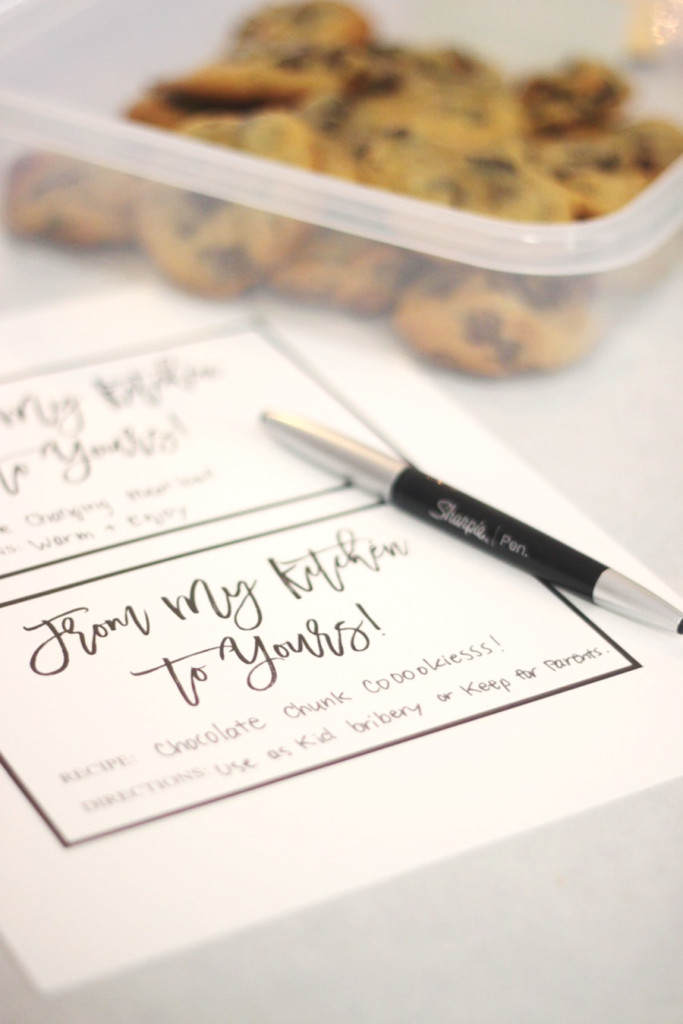 My Kitchen
to Yours!
Changing Meatloaf
Warm + Enjoy
Sharpie. | Pen.
From My Kitchen
to Yours!
RECIPE: Chocolate Chunk Cooookiesss!
DIRECTIONS: Use as Kid bribery or Keep for Parents.